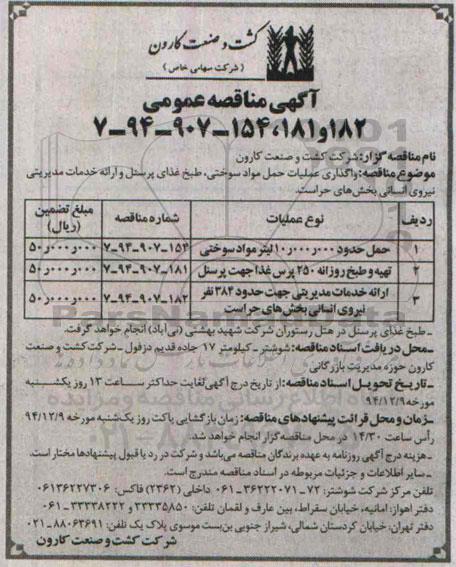 کشت و صنعت کارون
(شرکت سهامی خاص)
آگهی مناقصه عمومی
۷-۹۴-۹۰۷-۱۵۴،۱۸۱و۱۸۲
نام مناقصه گزار: شرکت کشت و صنعت کارون
موضوع مناقصه: واگذاری عملیات حمل مواد سوختی، طبخ غذای پرسنل و ارائه خدمات مدیریتی
نیروی انسانی بخش‌های حراست.
ردیف نوع عملیات شماره مناقصه مبلغ تضمین (ریال)
۱ حمل حدود ۱۰ر۰۰۰ر۰۰۰ لیتر مواد سوختی ۷-۹۴-۹۰۷-۱۵۴ ۵۰ر۰۰۰ر۰۰۰
۲ تهیه و طبخ روزانه ۲۵۰ پرس غذا جهت پرسنل ۷-۹۴-۹۰۷-۱۸۱ ۵۰ر۰۰۰ر۰۰۰
۳ ارائه خدمات مدیریتی جهت حدود ۳۸۴ نفر نیروی انسانی بخش‌های حراست ۷-۹۴-۹۰۷-۱۸۲ ۵۰ر۰۰۰ر۰۰۰
- طبخ غذای پرسنل در هتل رستوران شرکت شهید بهشتی (نی‌آباد) انجام خواهد گرفت.
- محل دریافت اسناد مناقصه: شوشتر - کیلومتر ۱۷ جاده قدیم دزفول - شرکت کشت و صنعت
کارون حوزه مدیریت بازرگانی
- تاریخ تحویل اسناد مناقصه: از تاریخ درج آگهی لغایت حداکثر ساعت ۱۳ روز یکشنبه
مورخه ۹۴/۱۲/۹
- زمان و محل قرائت پیشنهادهای مناقصه: زمان بازگشایی پاکت روز یکشنبه مورخه ۹۴/۱۲/۹
رأس ساعت ۱۴/۳۰ در محل مناقصه گزار انجام خواهد شد.
- هزینه درج آگهی روزنامه به عهده برندگان مناقصه می‌باشد و شرکت در رد یا قبول پیشنهادها مختار است.
- سایر اطلاعات و جزئیات مربوطه در اسناد مناقصه مندرج است.
تلفن مرکز شرکت شوشتر: ۷۲-۳۶۲۲۲۰۷۱-۰۶۱ داخلی (۲۳۶۲) فاکس: ۰۶۱۳۶۲۲۷۳۰۶
دفتر اهواز: امانیه، خیابان سقراط، بین عارف و لقمان تلفن: ۳۳۳۳۵۸۵۰ و ۳۳۳۳۸۲۲۲-۰۶۱
دفتر تهران: خیابان کردستان شمالی، شیراز جنوبی بن‌بست موسوی پلاک یک تلفن: ۸۸۰۶۳۶۹۱-۰۲۱
شرکت کشت و صنعت کارون
ParsNamadData